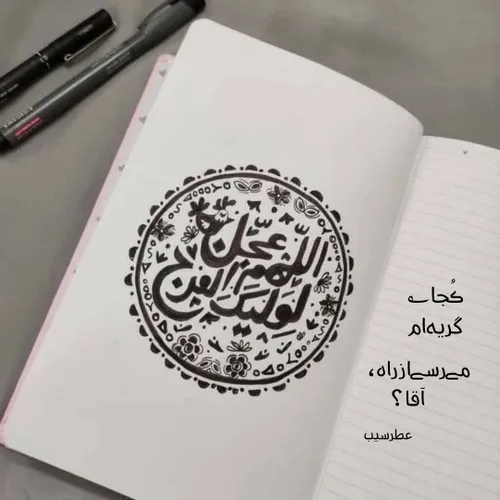 اللّهم عجّل
لوليك الفرج
کُجاے
گریه‌ام
مےرسےازراه،
آقا؟
عطرسیب